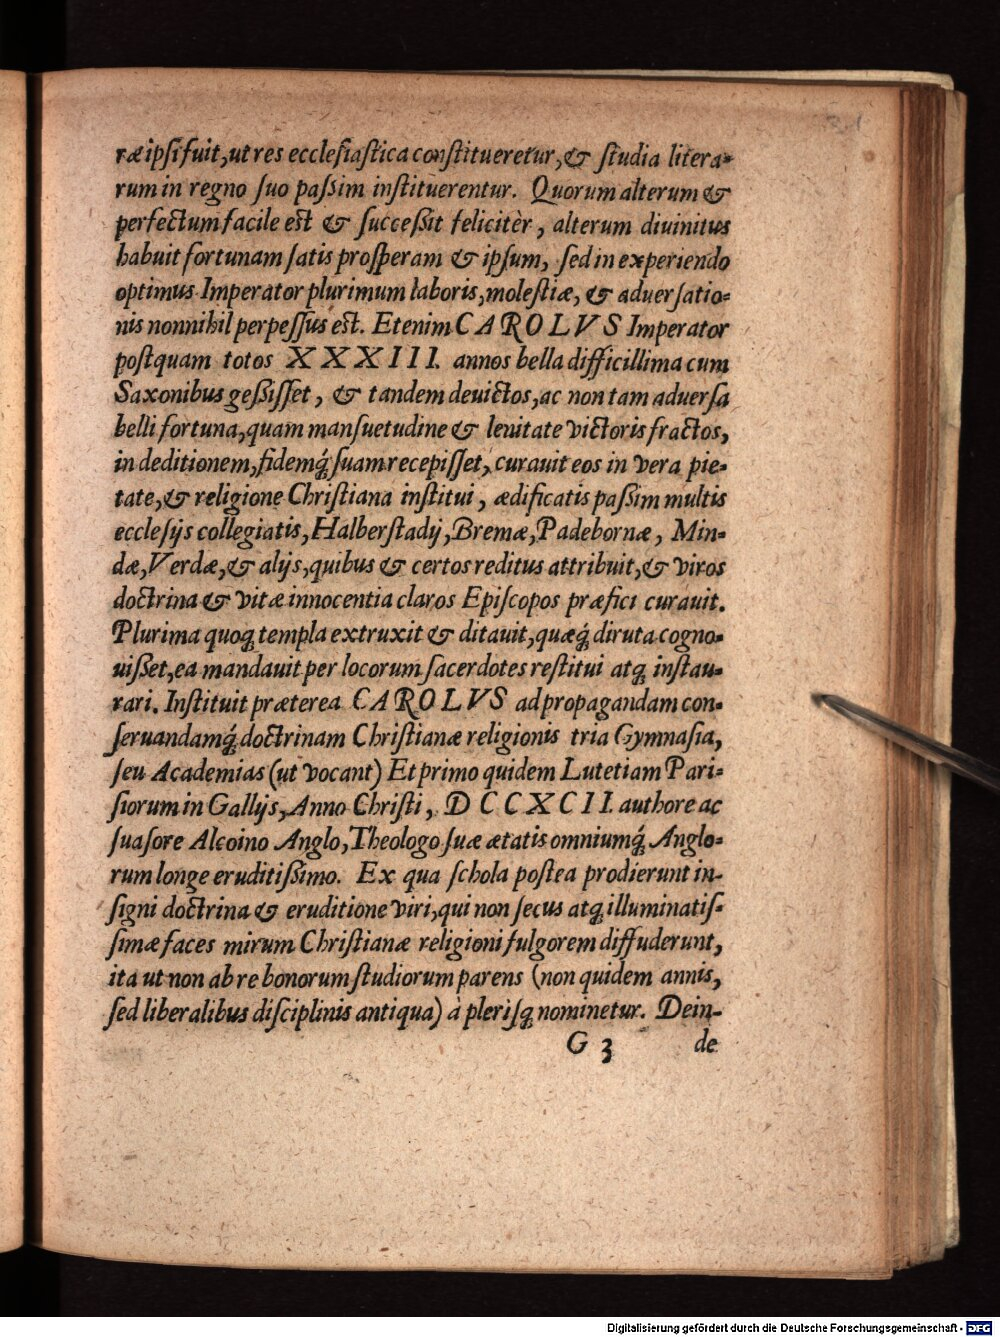 ræ ipsi fuit, ut res ecclesiastica constitueretur, & studia litera-
rum in regno suo passim instituerentur. Quorum alterum &
perfectum facile est & successit felicitèr, alterum diuinitus
habuit fortunam satis prosperam & ipsum, sed in experiendo
optimus Imperator plurimum laboris, molestiæ, & aduersatio-
nis nonnihil perpessus est. Etenim CAROLVS Imperator
postquam totos XXXIII. annos bella difficillima cum
Saxonibus gessisset, & tandem deuictos, ac non tam aduersa
belli fortuna, quam mansuetudine & lenitate victoris fractos,
in deditionem, fidemq́; suam recepisset, curauit eos in vera pie-
tate, & religione Christiana institui, ædificatis passim multis
ecclesijs collegiatis, Halberstadij, Bremæ, Padebornæ, Min-
dæ, Verdæ, & alijs, quibus & certos reditus attribuit, & viros
doctrina & vitæ innocentia claros Episcopos præfici curauit.
Plurima quoq; templa extruxit & ditauit, quæq́; diruta cogno-
uisset, ea mandauit per locorum sacerdotes restitui atq; instau-
rari. Instituit præterea CAROLVS ad propagandam con-
seruandamq́; doctrinam Christianæ religionis tria Gymnasia,
seu Academias (ut vocant) Et primo quidem Lutetiam Pari-
siorum in Gallijs, Anno Christi, DCCXCII. authore ac
suasore Alcoino Anglo, Theologo suæ ætatis omniumq́; Anglo-
rum longe eruditissimo. Ex qua schola postea prodierunt in-
signi doctrina & eruditione viri, qui non secus atq; illuminatis-
simæ faces mirum Christianæ religioni fulgorem diffuderunt,
ita ut non ab re bonorum studiorum parens (non quidem annis,
sed liberalibus disciplinis antiqua) à plerisq; nominetur. Dein-
G 3 de
Digitalisierung gefördert durch die Deutsche Forschungsgemeinschaft - DFG